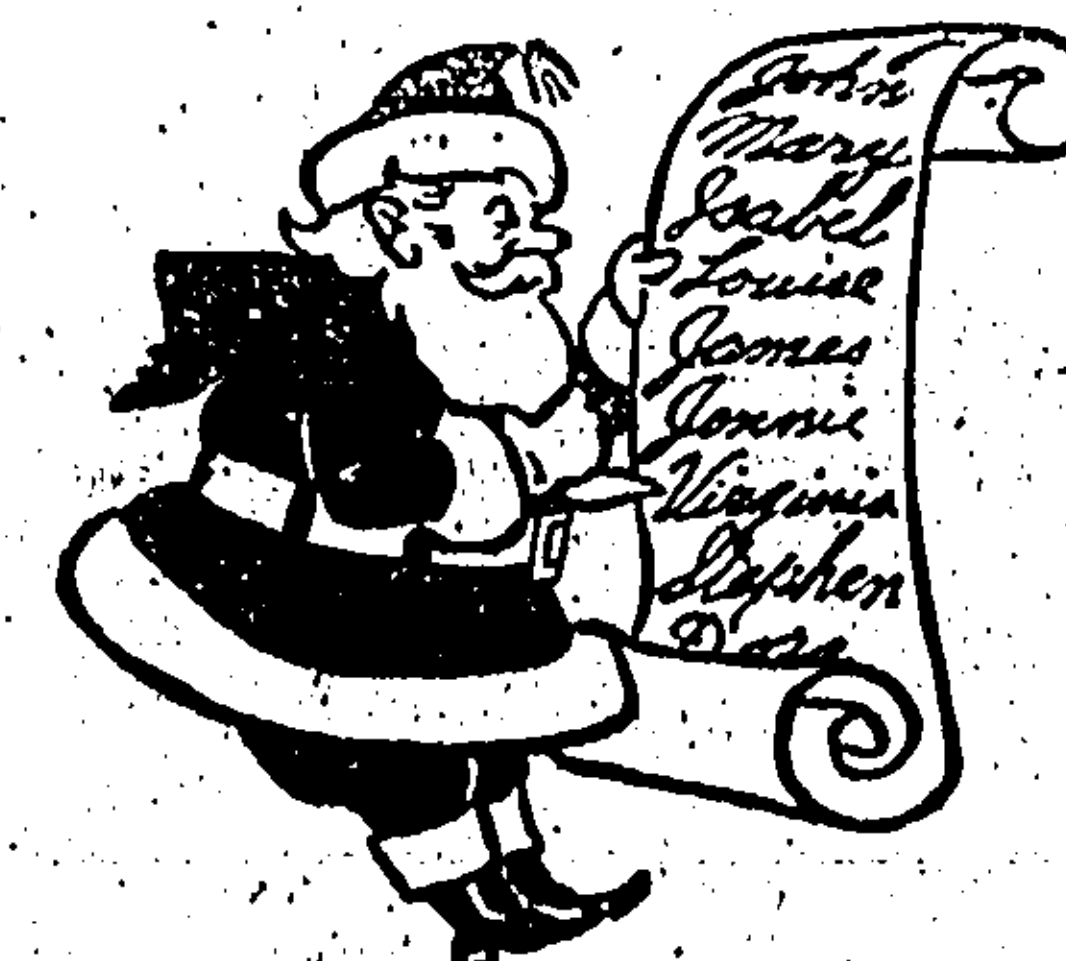 John
Mary
Isabel
Louise
James
Jonnie
Virginia
Stephen